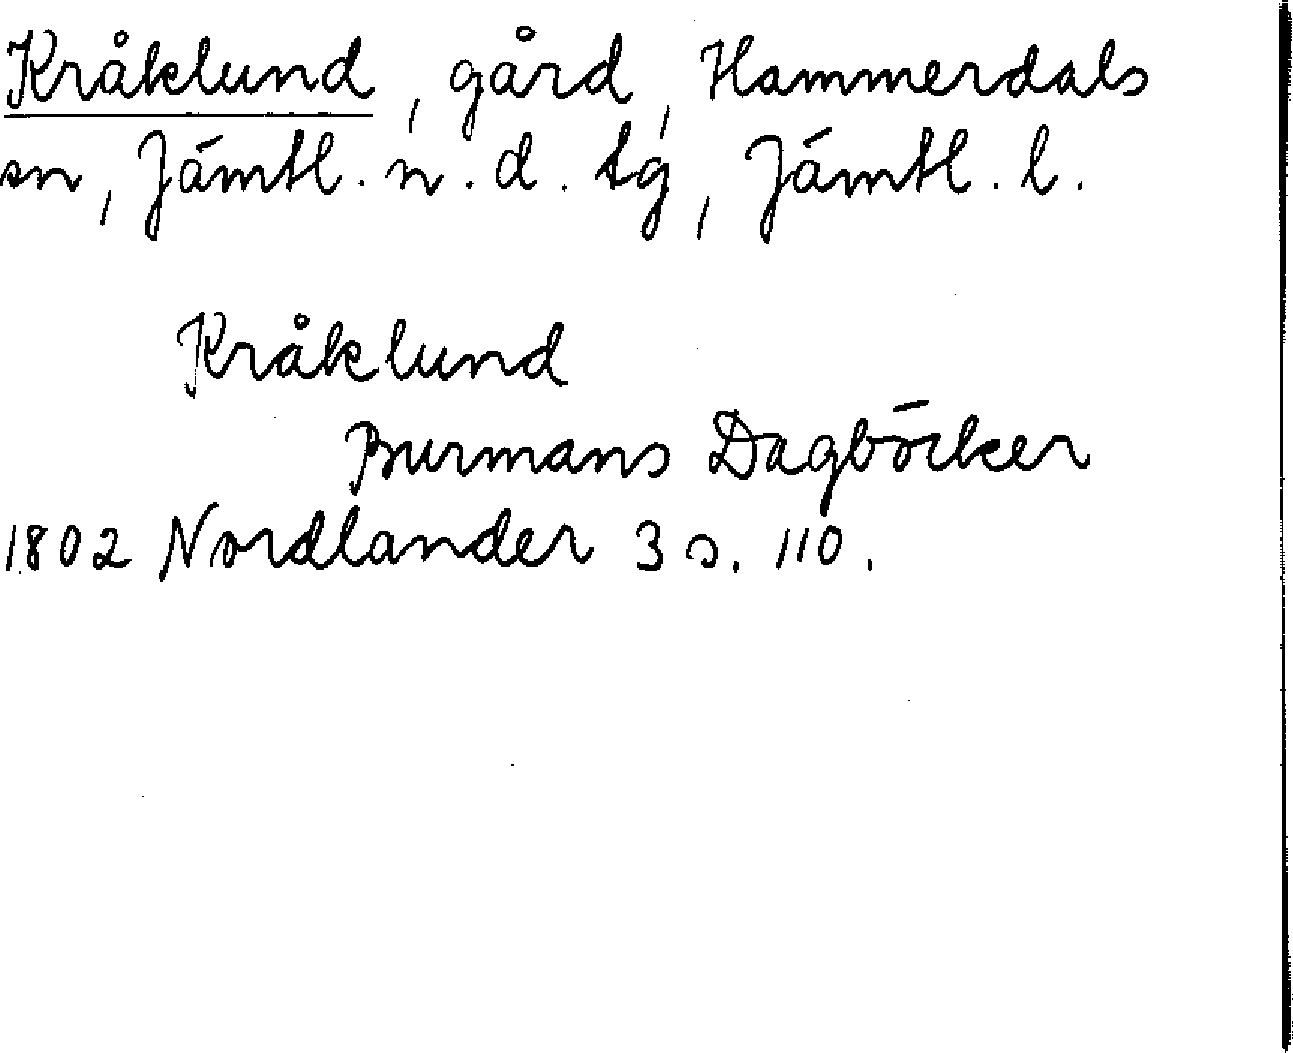 Kråklund, gård, Hammerdals
sn, Jämtl. n. d. tg, Jämtl. l.
Kråklund
Burmans Dagböcker
1802 Nordlander 3 s. 110.